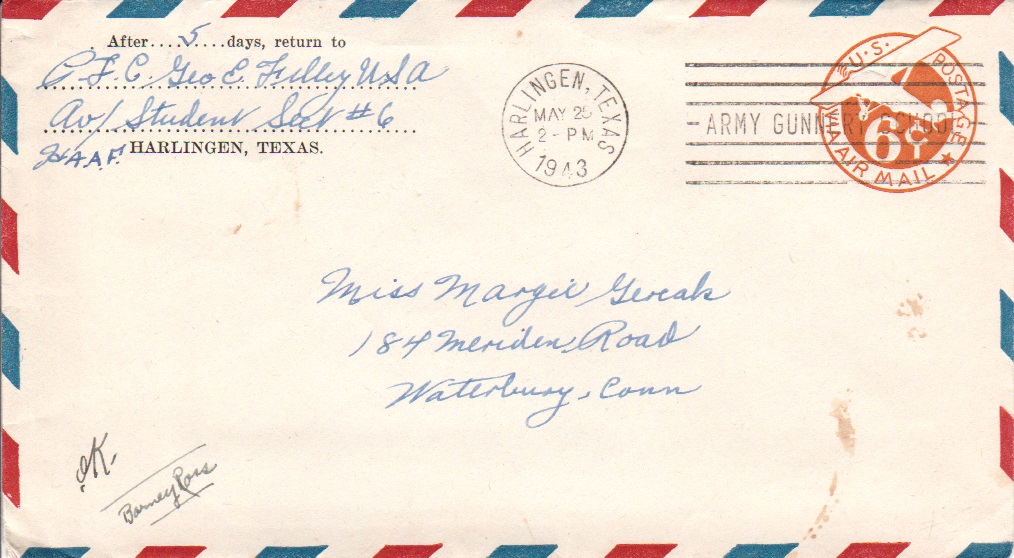 After....5....days, return to
P.F.C. Geo E. Filley USA
Av/Student Sect #6
H.A.A.F. HARLINGEN, TEXAS.
HARLINGEN, TEXAS
MAY 25
2 - PM
1943
ARMY GUNNERY SCHOOL
U.S. POSTAGE
6¢
VIA AIR MAIL
Miss Margie Gereak
184 Meriden Road
Waterbury, Conn
OK.
Barney Ross